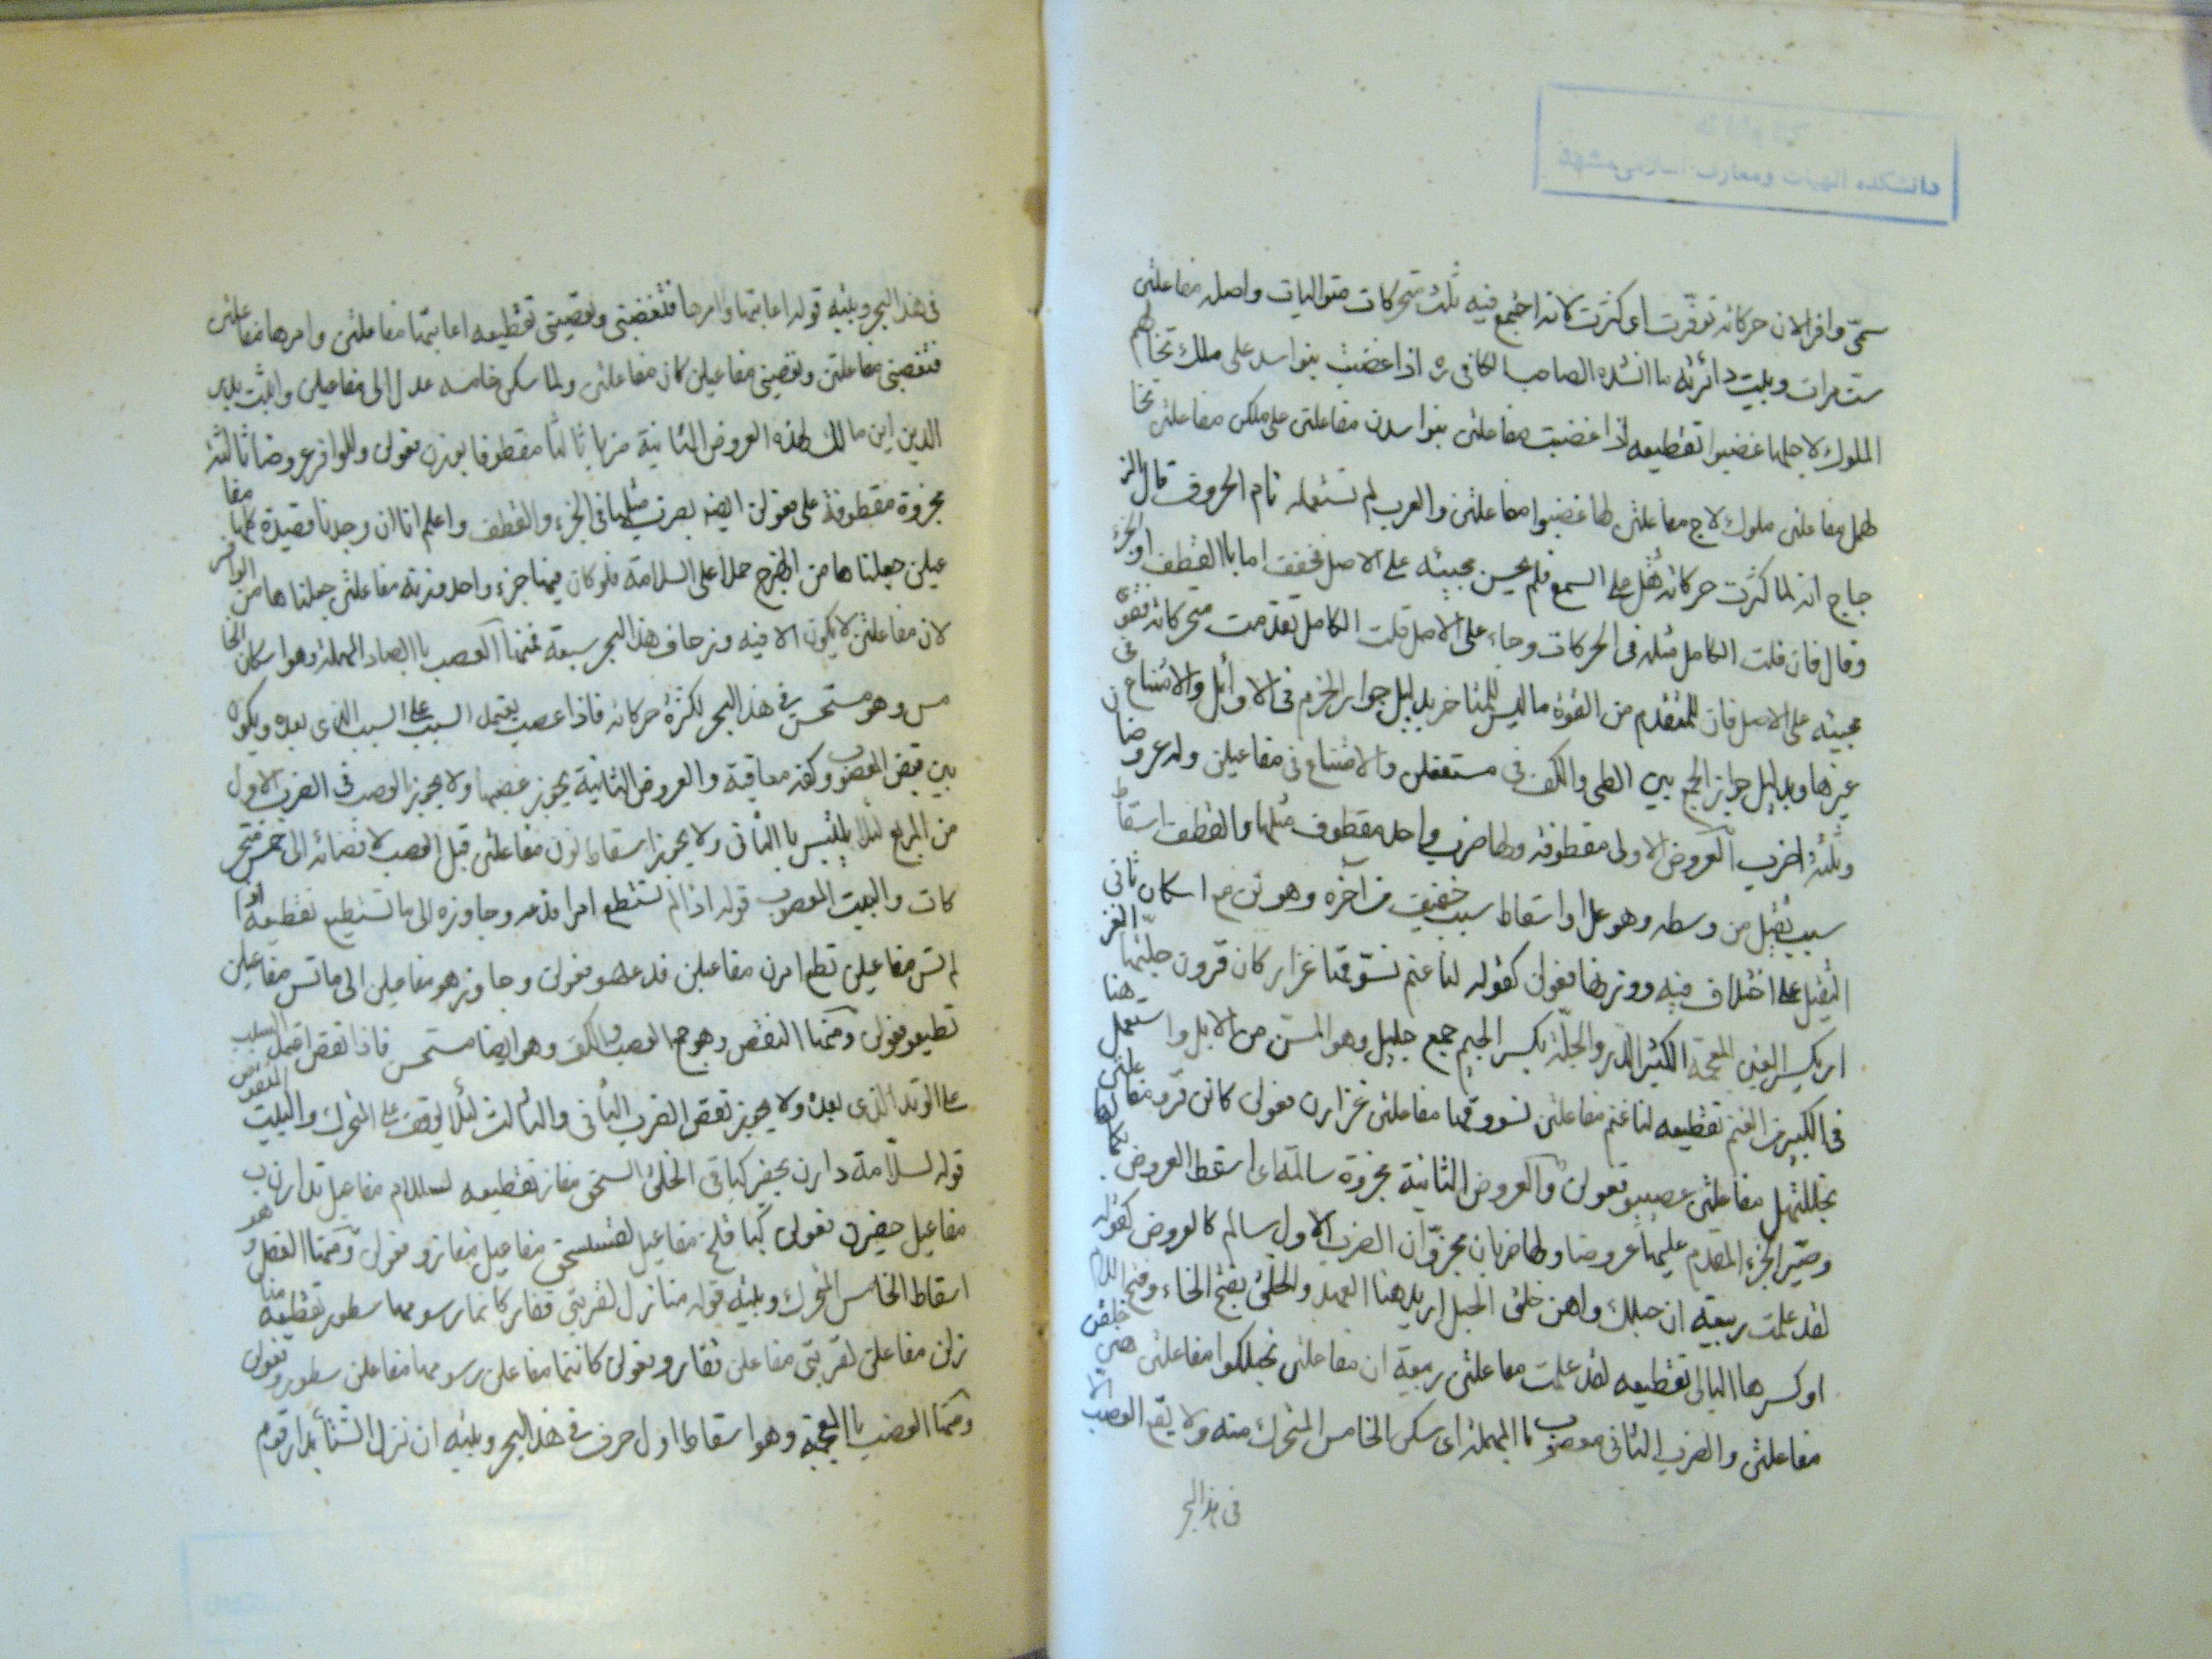 سمّى وافرا لان حركاته توفّرت اى كثرت لانه اجتمع فيه ثلث متحركات متواليات واصله مفاعلتن
ستّ مرات وبيت دائرته ما انشده الصاحب الكافى ره اذا غضبت بنو اسد على ملك تخالهم
الملوك لاجلها غضبوا تقطيعه اذا غضبت مفاعلتن بنو اسدن مفاعلتن على ملكن مفاعلتن تخا
لهمل مفاعلتن ملوك لاج مفاعلتن لها غضبوا مفاعلتن والعرب لم تستعمله تام الحروف قال الز
جاج انه لما كثرت حركاته ثقل على السمع فلم يحسن مجيئه على الاصل فخفف اما باالقطف او الجزء
وقال فان قلت الكامل مثله فى الحركات وجاء على الاصل قلت الكامل تقدمت متحركاته فقوى
مجيئه على الاصل فان للمتقدم من القوة ما ليس للمتاخر بدليل جواز الخرم فى الاوائل والامتناع فى
غيرها وبدليل جواز الجمع بين الطى والكف فى مستفعلن والامتناع فى مفاعيلن وله عروضان
وثلثة اضرب العروض الاولى مقطوفة ولها ضرب واحد مقطوف مثلها والقطف اسقاط
سبب ثقيل من وسطه وهو عل او اسقاط سبب خفيف من آخره وهو تن مع اسكان ثانى
الثقيل على اختلاف فيه ووزنها فعولن كقوله لنا غنم نسوّقها غزار كان قرون جلّتها
ار بكسر الغين المعجمة الكثير الدر والجلّة بكسر الجيم جمع جليل وهو المسن من الابل واستعمل هنا
فى الكبير من الغنم تقطيعه لنا غنم مفاعلتن نسووقها مفاعلتن غزارن فعولن كانن قرو مفاعلتن
نجللتهل مفاعلتن عصييو فعولن والعروض الثانية مجزوة سالمة اى اسقط العروض
وصيّر الجزء المقدم عليها عروضا ولها ضربان مجزوّان الضرب الاول سالم كالعروض كقوله
لقد علمت ربيعة ان حبلك واهن خلق الحبل اريد هنا العهد والخلق بفتح الخاء وفتح اللام
او كسرها البالى تقطيعه لقد علمت مفاعلتن ربيعة ان مفاعلتن نحبلكوا مفاعلتن هنن خلقن
مفاعلتن والضرب الثانى معصوب باالمهملة اى سكن الخامس المتحرك منه ولا يقع العصب الا
فى هذا البحر
فى هذا البحر وبيته قوله اعاتبها وامرها فتغضبنى وتعصينى تقطيعه اعاتبها مفاعلتن وامرها مفاعلتن
فتغضبنى مفاعلتن وتعصينى مفاعيلن كان مفاعلتن ولما سكن خامسه عدل الى مفاعيلن
الدين ابن مالك لهذه العروض الثانية ضربا ثالثا مقطوفا بوزن فعولن وللوافر عروضا ثالثة
مجزوة مقطوفة على فعولن ايضه بضرب مثلها فى الجزء والقطف واعلم انا ان وجدنا قصيدة كلها مفا
عيلن جعلناها من الهزج حملا على السلامة فلو كان فيها جزء واحد وزنه مفاعلتن جعلناها من الوافر
لان مفاعلتن لا يكون الا فيه وزحاف هذا البحر سبعة فمنها العصب باالصاد المهملة وهو اسكان الخا
مس وهو مستحسن فى هذا البحر لكثرة حركاته فاذا عصب يعتمل السبب على السبب الذى بعده ويكون
بين قبض المعصوب وكفه معاقبة والعروض الثانية يجوز عصبها ولا يجوز العصب فى الضرب الاول
من المربع لئلا يلتبس باالثانى ولا يجوز اسقاط نون مفاعلتن قبل العصب لافضائه الى خمس متحر
كات والبيت المعصوب قوله اذا لم تستطع امرا فدعه وجاوزه الى ما تستطيع تقطيعه اذا
لم تس مفاعيلن تطع امرن مفاعيلن فدعهو فعولن وجاوزهو مفاعيلن الى ما تس مفاعيلن
تطيعو فعولن ومنها النقص وهو جمع العصب والكف وهو ايضا مستحسن فاذا نقص اعتمل السبب
على الوتد الذى بعده ولا يجوز نقص الضرب الثانى والثالث لئلا يوقف على المتحرك والبيت المنقوص
قوله لسلّامة دار بحفير كباقى الخلق السحق قفار تقطيعه لسللام مفاعيل تدارن ب
مفاعيل حفيرن فعولن كباقلخ مفاعيل لقسسحق مفاعيل قفارو فعولن ومنها العقل وهو
اسقاط الخامس المتحرك وبيته قوله منازل لفرتنى قفار كانما رسومها سطور تقطيعه منا
زلن مفاعلن لفرتنى مفاعلن قفارو فعولن كاننما مفاعلن رسومها مفاعلن سطورو فعولن
ومنها العضب باالمعجمة وهو اسقاط اول حرف فى هذا البحر وبيته ان نزل الشتاء بدار قوم